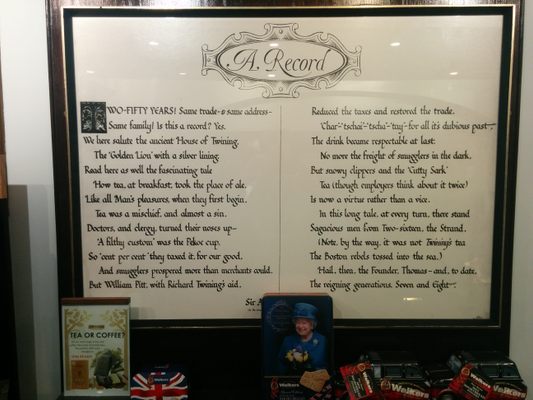 A Record
TWO-FIFTY YEARS! Same trade & same address-
Same family! Is this a record? Yes.
We here salute the ancient House of Twining,
The 'Golden Lion' with a silver lining.
Read here as well the fascinating tale
How tea, at breakfast, took the place of ale.
Like all Man's pleasures, when they first begin,
Tea was a mischief, and almost a sin.
Doctors, and clergy, turned their noses up-
'A filthy custom' was the Pekoe cup.
So 'cent per cent' they taxed it, for our good,
And smugglers prospered more than merchants could.
But William Pitt, with Richard Twining's aid,
Reduced the taxes and restored the trade.
'Char'-'tschai'-'tscha'-'tay'-for all it's dubious past-
The drink became respectable at last:
No more the freight of smugglers in the dark,
But snowy clippers and the 'Cutty Sark'.
Tea (though employers think about it twice)
Is now a virtue rather than a vice.
In this long tale, at every turn, there stand
Sagacious men from Two-sixteen, the Strand.
(Note, by the way, it was not Twining's tea
The Boston rebels tossed into the sea.)
Hail, then, the Founder, Thomas-and, to date,
The reigning generations, Seven and Eight-
Sir A
TEA OR COFFEE?
Walkers
Walkers
Walkers
Walkers